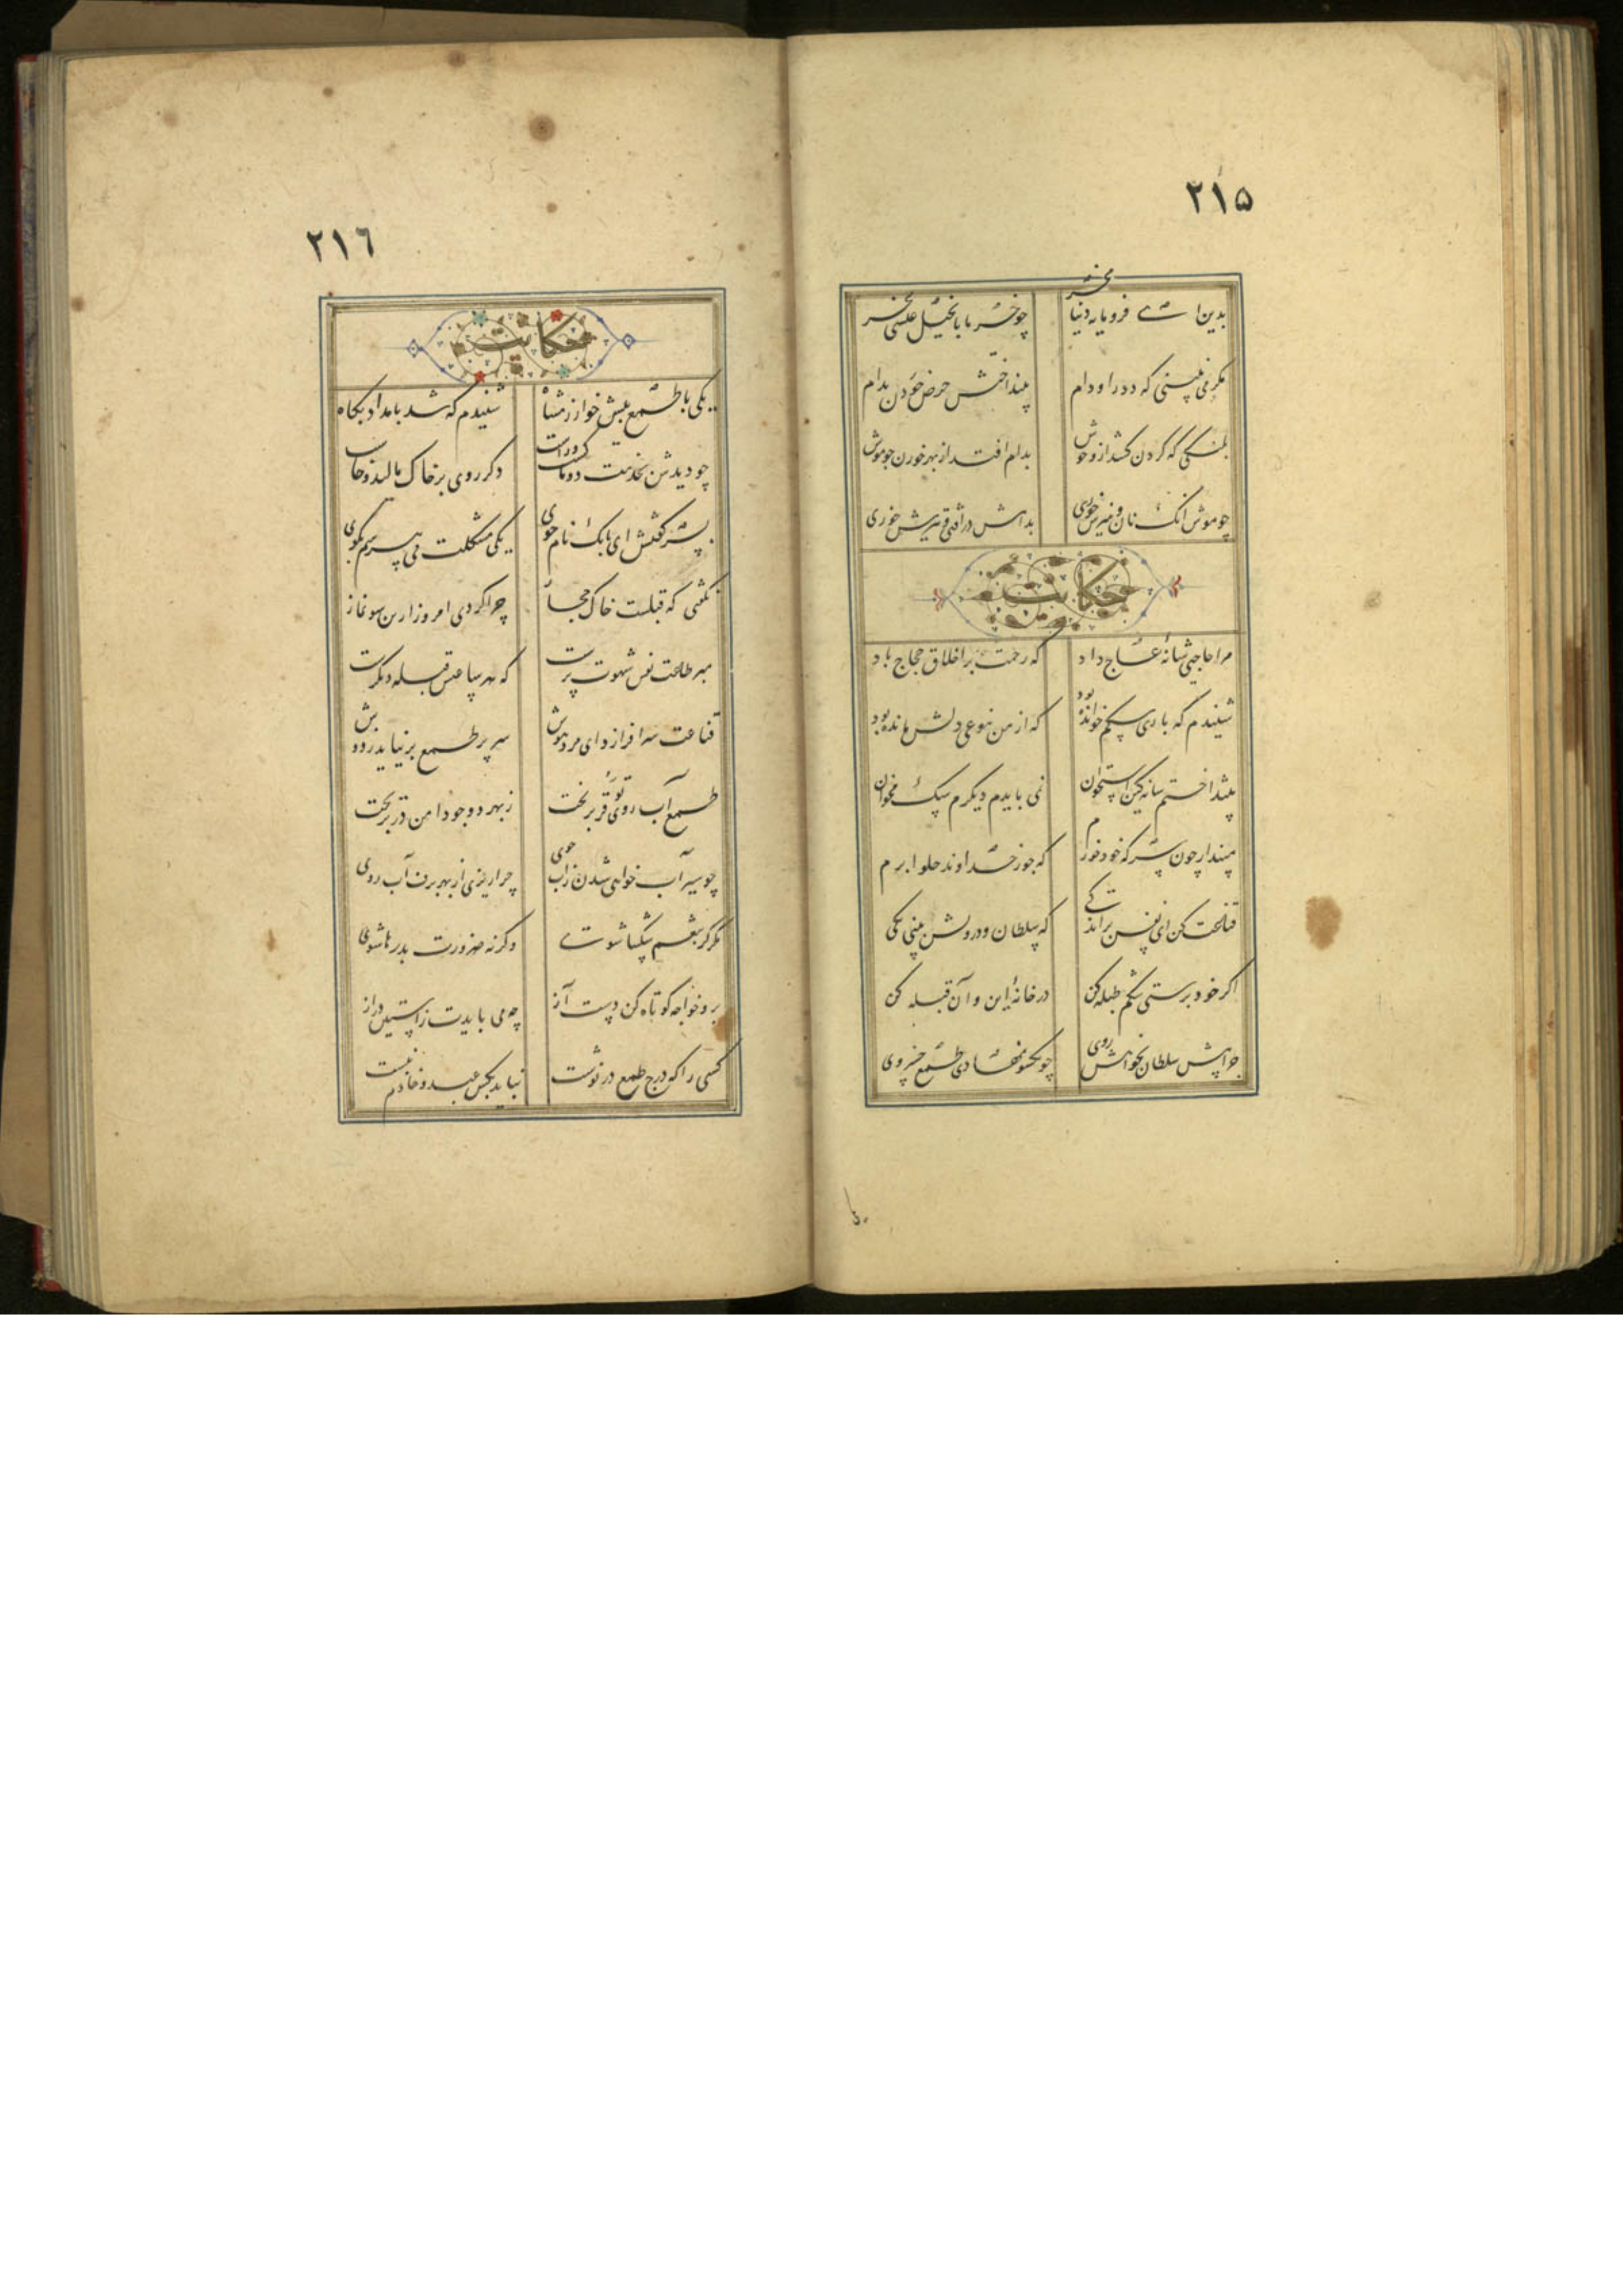 ٢١٥
بدین ای فرومایه دنیا مخر
چو خر بانجیل عیسی مخر
مگر می نبینی که دد را و دام
نینداخت جز حرص خوردن بدام
پلنگی که گردن کشد از وحوش
بدام افتد از بهر خوردن چو موش
چو موش آنکه نان و پنیرش خوری
بدامش درافتی و تیرش خوری
حکایت
مرا حاجیی شانهٔ عاج داد
که رحمت بر اخلاق حجاج باد
شنیدم که باری سگم خوانده بود
که از من بنوعی دلش مانده بود
بینداختم شانه کین استخوان
نمی بایدم دیگرم سگ مخوان
مپندار چون سرکه خود خورم
که جور خداوند حلوا برم
قناعت کن ای نفس بر اندکی
که سلطان و درویش بینی یکی
اگر خودپرستی شکم طبله کن
در خانهٔ این و آن قبله کن
چرا پیش سلطان بخواهش روی
چو یکسو نهادی طمع خسروی
٢١٦
حکایت
یکی با طمع پیش خوارزمشاه
شنیدم که شد بامداد پگاه
چو دیدش بخدمت دوتا گشت و راست
دگر روی بر خاک مالید و خاست
پسر گفتش ای بابک نامجوی
یکی مشکلت می پرسم بگوی
نگفتی که قبلست خاک حجاز
چرا کردی امروز ازین سو نماز
مبر طاعت نفس شهوت پرست
که هر ساعتش قبله دیگرست
قناعت سرافرازد ای مرد هوش
سر پر طمع برنیاید ز دوش
طمع آب روی توقر بریخت
ز بهر دو جو دامن در بریخت
چو سیراب خواهی شدن زاب جوی
چرا ریزی از بهر برف آب روی
مگر کز تنعم شکیبا شوی
وگرنه ضرورت بدرها شوی
برو خواجه کوتاه کن دست آز
چه می بایدت زاستین دراز
کسی را که درج طمع درنوشت
نباید بکس عبد و خادم نبشت